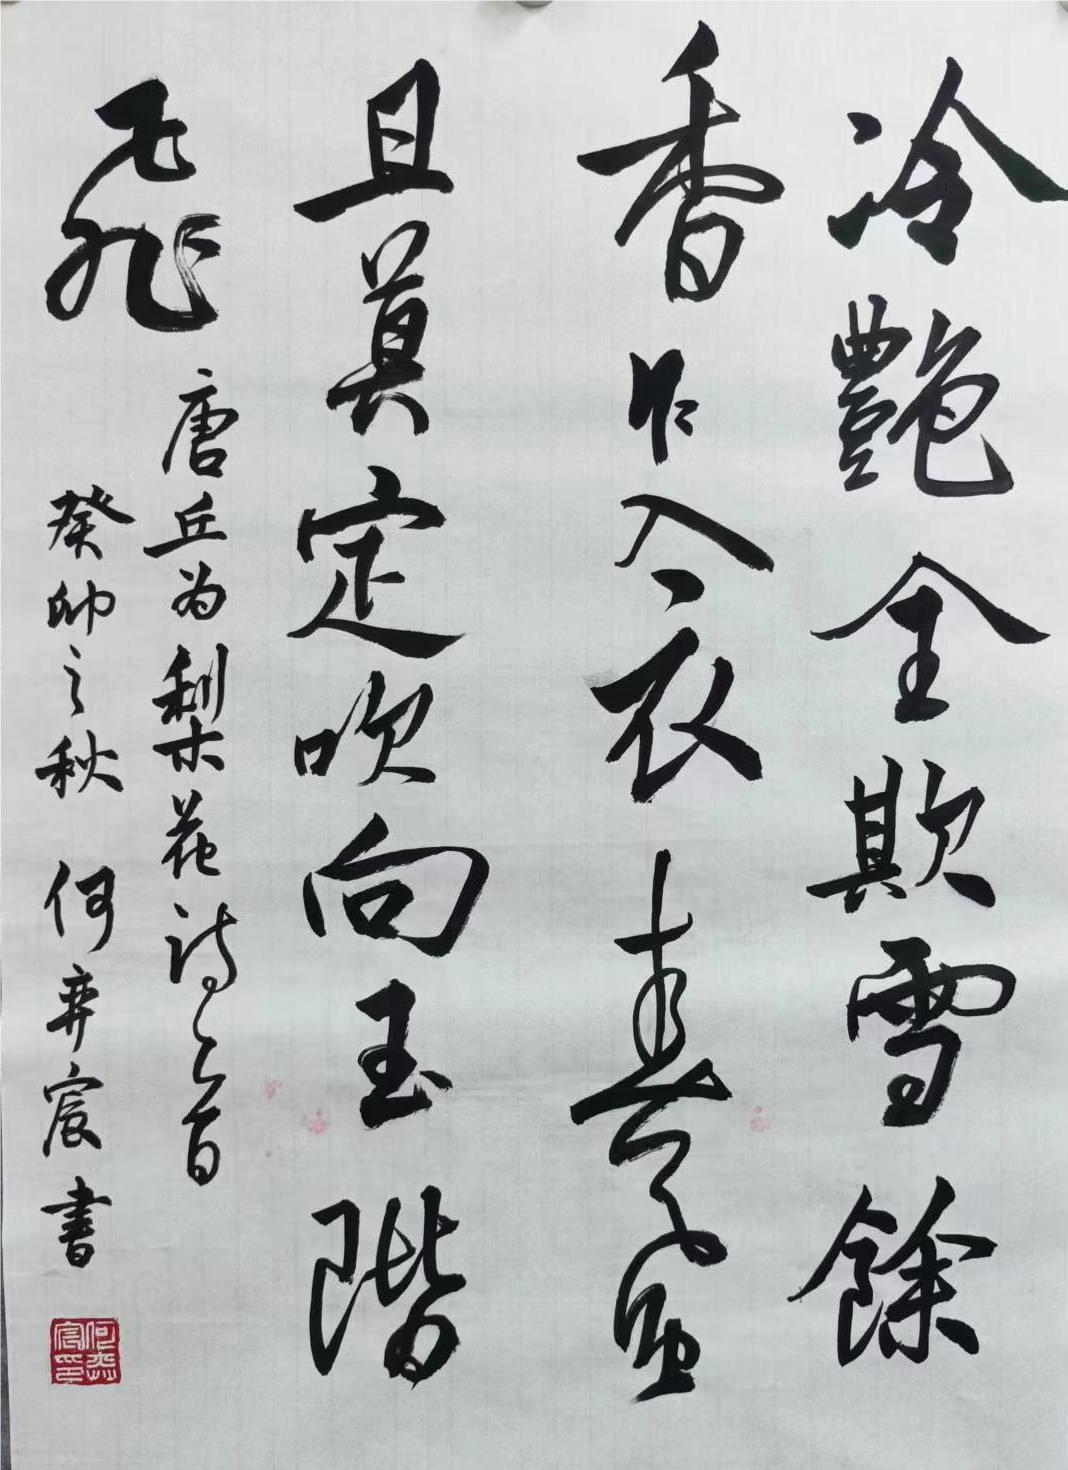 冷艷全欺雪餘
香乍入衣春風
且莫定吹向玉階
飛
唐丘为梨花诗一首
癸卯之秋 何弈宸書
何弈宸印